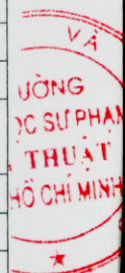 VÀ
UỜNG
ỌC SƯ PHẠM
THUẬT
HỒ CHÍ MINH